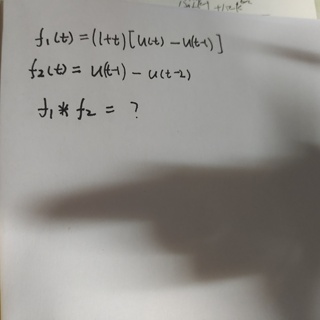 f₁(t) = (1+t)[u(t) - u(t-1)]
f₂(t) = u(t-1) - u(t-2)
f₁ * f₂ = ?